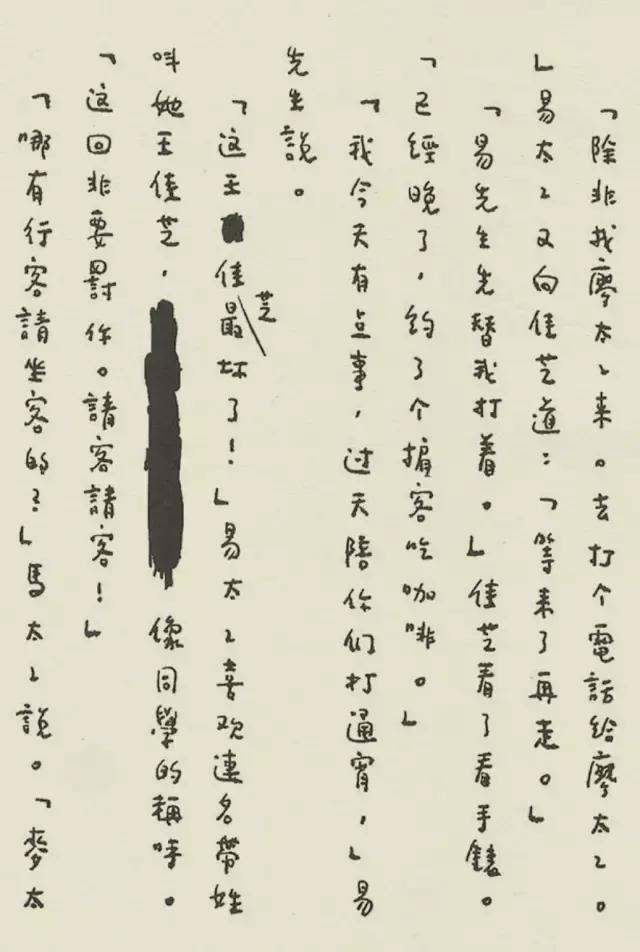 「除非找廖太々来。去打个電話给廖太々。
」易太々又向佳芝道：「等来了再走。」
「易先生先替我打着。」佳芝看了看手錶。
「已經晚了，约了个掮客吃咖啡。」
「我今天有点事，过天陪你们打通宵，」易
先生說。
「这王佳芝最坏了！」易太々喜欢連名帶姓
叫她王佳芝，像同學的稱呼。
「这回非要罸你。請客請客！」
「哪有行客請坐客的？」馬太々說。「麥太